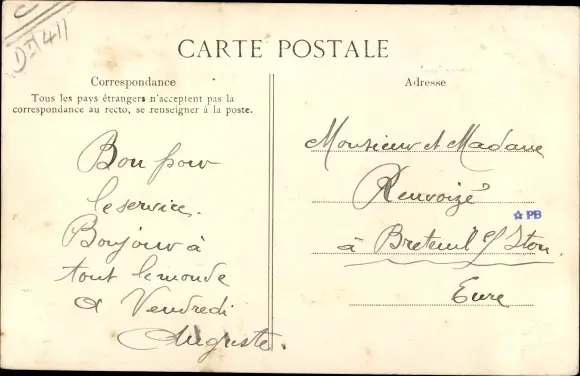 DIV411
CARTE POSTALE
Correspondance
Tous les pays étrangers n'acceptent pas la
correspondance au recto, se renseigner à la poste.
Bon pour
le service.
Bonjour à
tout le monde
a Vendredi
Auguste.
Adresse
Monsieur et Madame
Renvoizé
PB
à Breteuil s/ Iton
Eure